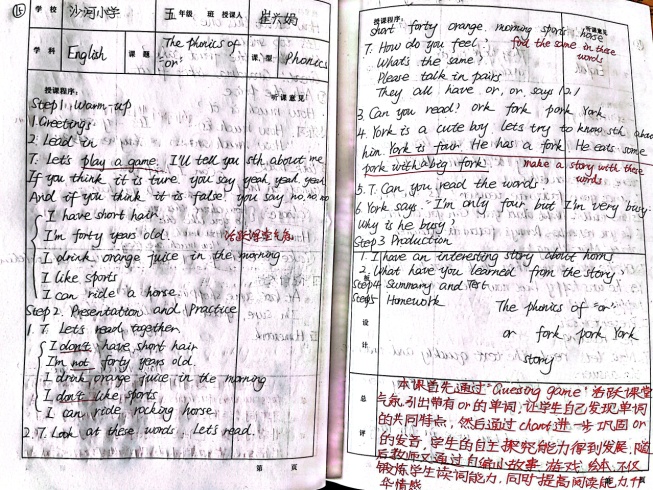 15
学校 沙河小学 五年级 班 授课人 崔兴娟
学科 English 课题 The phonics of "or" 课型 Phonics
授课程序: 听课意见:
Step 1 Warm-up
1. Greetings.
2. Lead in
T. Let's play a game. I'll tell you sth. about me
If you think it is ture. you say yeah, yeah, yeah
And if you think it is false you say no, no, no
I have short hair.
I'm forty years old. 活跃课堂气氛
I drink orange juice in the morning
I like sports
I can ride a horse.
Step 2. Presentation and Practice
1. T. Let's read together.
I don't have short hair
I'm not forty years old.
I drink orange juice in the morning
I don't like sports
I can ride rocking horse.
2. T. Look at these words. Let's read.
第 页
授课程序: 听课意见
short forty orange morning sports horse
T. How do you feel? find the same in these words
What's the same?
Please talk in pairs
They all have or, or. says
3. Can you read? ork fork pork York
4. York is a cute boy lets try to know sth about
him. York is four. He has a fork. He eats some
pork with a big fork. make a story with these words
5. T. Can you read the words
6 York says. "I'm only four but I'm very busy.
Why is he busy?
Step 3 Production
1. I have an interesting story about horns
2. What have you learned from the story
Step 4 Summary and Test
Step 5 Homework
板书设计
The phonics of "or"
or fork pork York
story
总评
本课首先通过"Guessing game"活跃课堂
气氛,引出带有or的单词,让学生自己发现单词
的共同特点,然后通过chant进一步巩固or
的发音,学生的自主探究能力得到发展,随
后教师又通过自编小故事 游戏 绘本,不仅
锻炼学生读词能力,同时提高阅读能力,升
华情感